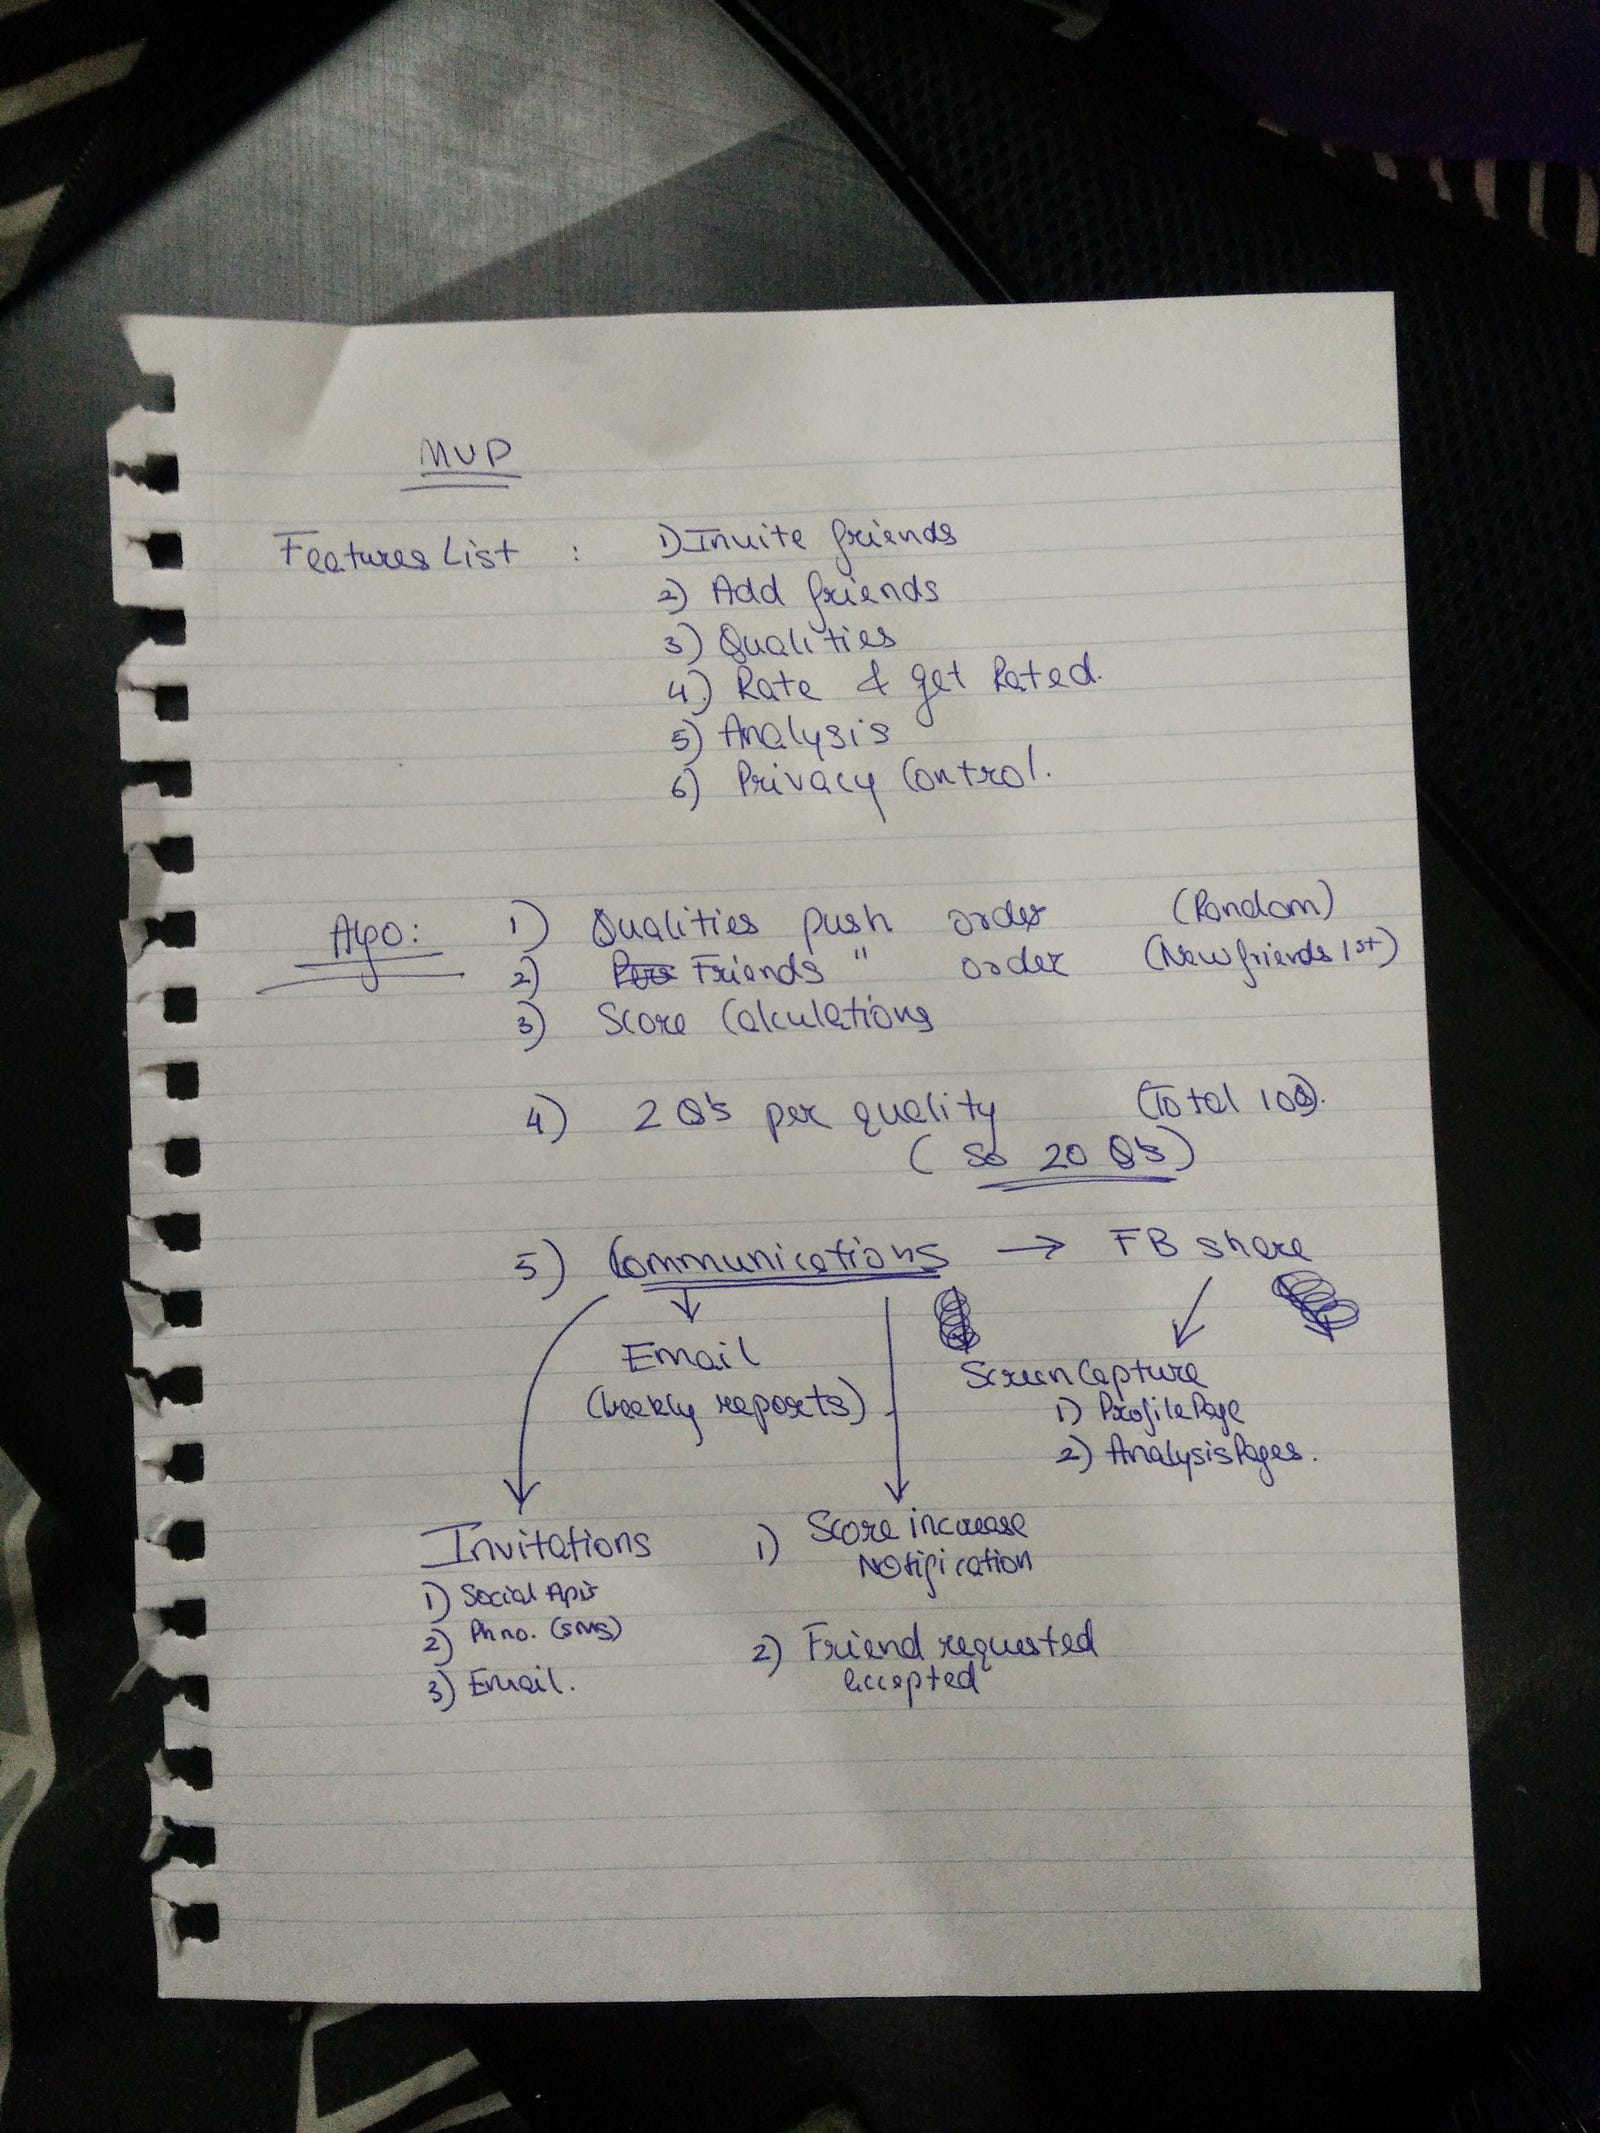 MVP
Features List : 1) Invite friends
2) Add friends
3) Qualities
4) Rate & get Rated.
5) Analysis
6) Privacy Control.
Algo: 1) Qualities push order (Random)
2) Friends " order (New friends 1st)
3) Score Calculations
4) 2 Q's per quality (Total 10Q).
(So 20 Q's)
5) Communications → FB share
Email
(weekly reports)
Screen Capture
1) Profile Page
2) Analysis Pages.
Invitations
1) Social Apis
2) Ph no. (SMS)
3) Email.
1) Score increase
Notification
2) Friend requested
accepted